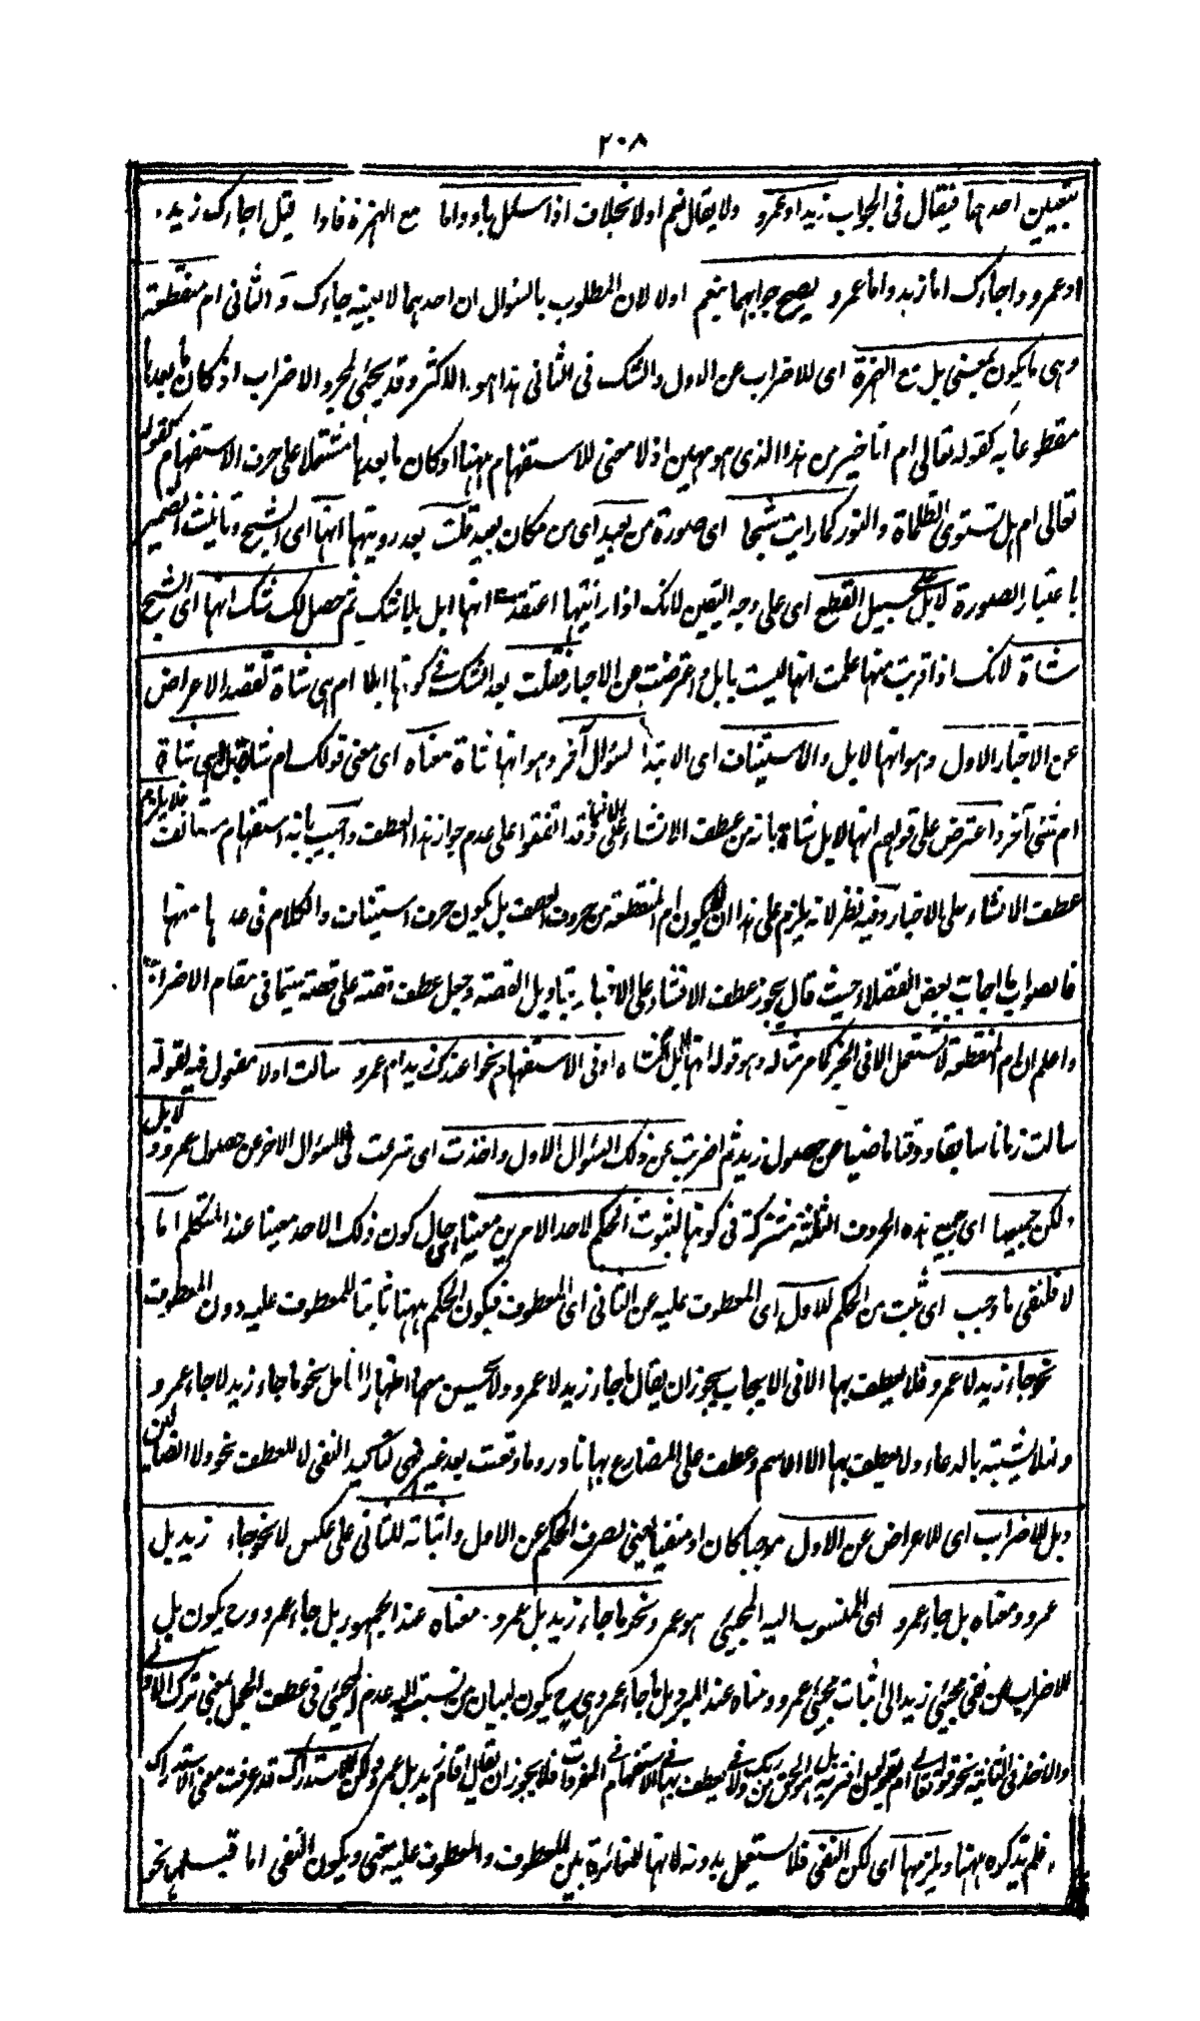 ٢٠٨
بتعيين احدهما فيقال فى الجواب زيد او عمرو ولا يقال نعم او لا بخلاف اذا سئل باو واما مع الهمزة فاذا قيل اجاءك زيد
او عمرو واجاءك اما زيد واما عمرو يصح جوابهما بنعم او لا لان المطلوب بالسؤال ان احدهما لا بعينه جاءك والثانى ام منقطعة
وهى ما يكون بمعنى بل مع الهمزة اى للاضراب عن الاول والشك فى الثانى هذا هو الاكثر وقد يجئ لمجرد الاضراب اذ كان ما بعدها
مقطوعا به كقوله تعالى ام انا خير من هذا الذى هو مهين اذ لا معنى للاستفهام ههنا او كان ما بعدها مشتملا على حرف الاستفهام كقوله
تعالى ام هل تستوى الظلماة والنور كما رايت شبحا اى صورة من بعيد اى من مكان بعيد قلت بعد رويتها انها اى الشبح وتانيث الضمير
باعتبار الصورة لابل على سبيل القطع اى على وجه اليقين لانك اذا رايتها اعتقدت انها ابل بلا شك ثم حصل لك شك انها اى الشبح
شاة لانك اذا قربت منها علمت انها ليست بابل واعرضت عن الاخبار فقلت بعد الشك فى كونها ابلا ام هى شاة تقصد الاعراض
عن الاخبار الاول وهو انها لابل والاستيناف اى الابتداء لسؤال آخر وهو انها شاة معناه اى معنى قولك ام شاة بل اهى شاة
ام شئ آخر واعترض على قولهم انها لابل شاة بانه من عطف الانشاء على الاخبار وقد اتفقوا على عدم جواز هذا العطف واجيب بانه استفهام مستانف فلا يلزم
عطف الانشاء على الاخبار وفيه نظر لانه يلزم على هذا ان لا يكون ام المنقطعة من حروف العطف بل يكون حرف استيناف والكلام فى عدها منها
فالصواب ما اجاب بعض الفضلاء حيث قال يجوز عطف الانشاء على الاخبار بتاويل القصة وجعل عطف قصة على قصة سيما فى مقام الاضراب
واعلم ان ام المنقطعة لا تستعمل الا فى الخبر كما مر مثاله وهو قوله انها لابل ام شاة او فى الاستفهام نحو اعندك زيد ام عمرو سالت اولا مفعول فيه لقوله
سالت زمانا سابقا ووقتا ماضيا عن حصول زيد ثم اضربت عن ذلك السؤال الاول واخذت اى شرعت فى السؤال الاخر عن حصول عمرو ولا بل
ولكن جميعها اى جميع هذه الحروف الثلثة مشتركة فى كونها لثبوت الحكم لاحد الامرين معينا اى حال كون ذلك الاحد معينا عند المتكلم اما
لا فلنفى ما وجب اى ثبت من الحكم للاول اى المعطوف عليه عن الثانى اى المعطوف فيكون الحكم ههنا ثابتا للمعطوف عليه دون المعطوف
نحو جاء زيد لا عمرو فلا يعطف بها الا فى الايجاب يجوز ان يقال ما جاء زيد لا عمرو ولا يحسن معها اظهار العامل نحو ما جاء زيد لا جاء عمرو
وهذا يشبه بالدعاء ولا يعطف بها الا الاسم وعطف على المضارع بها نادر وما وقعت بعد غير فهى لتاكيد النفى لا للعطف نحو ولا الضالين
وبل للاضراب اى للاعراض عن الاول موجبا كان او منفيا يعنى لصرف الحكم عن الاول واثباته للثانى على عكس لا نحو جاء زيد بل
عمرو ومعناه بل جاء عمرو اى المنسوب اليه المجيئ هو عمرو ونحو ما جاء زيد بل عمرو معناه عند الجمهور بل جاء عمرو وح يكون بل
للاضراب من نفى مجيئ زيد الى اثبات مجيئ عمرو ومعناه عند المبرد بل ما جاء عمرو وح يكون لبيان من نسبت اليه عدم المجيئ وفى عطف الجمل بمعنى ترك الاول
والاخذ فى الثانية نحو قوله تعالى ام يقولون افتريه بل هو الحق من ربك ولا يعطف بها فى الاستفهام فى المفردات فلا يجوز ان يقال اقام زيد بل عمرو ولكن للاستدراك قد عرفت معنى الاستدراك
فلم تذكره ههنا ويلزمها اى لكن النفى فلا تستعمل بدونه لانها للمغائرة بين المعطوف والمعطوف عليه معنى ويكون النفى اما قبلها نحو